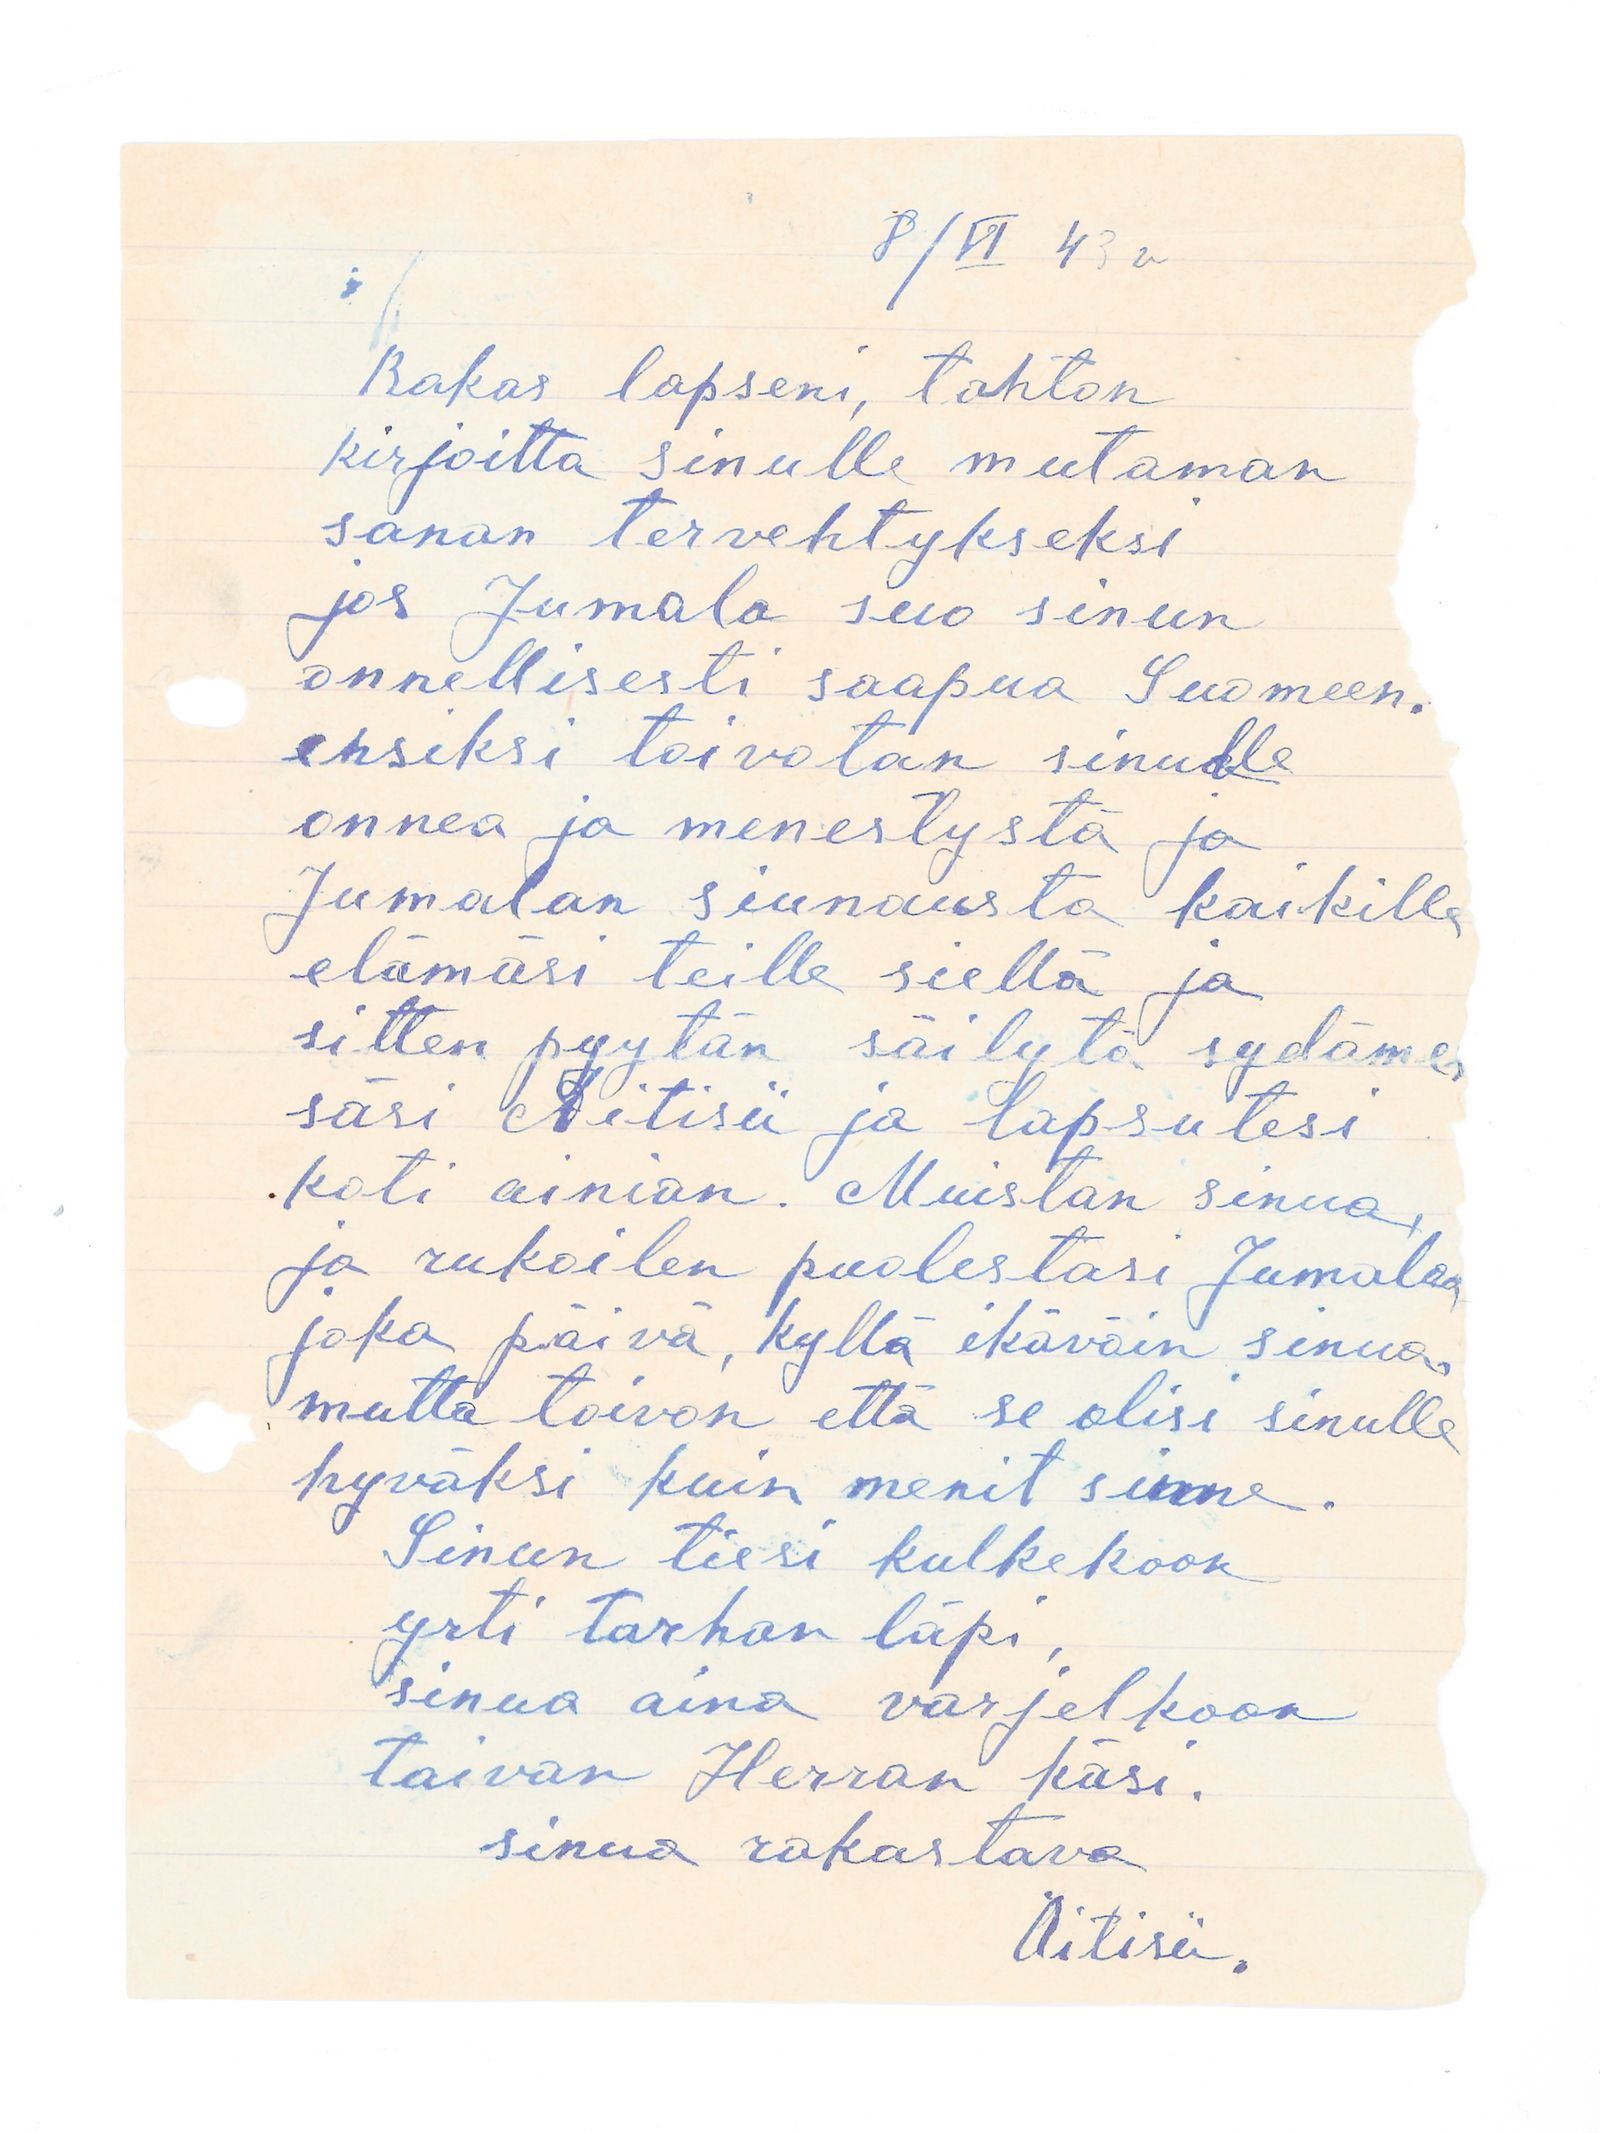 8/VI 43 v
Rakas lapseni, tahton
kirjoitta sinulle mutaman
sanan tervehtykseksi
jos Jumala suo sinun
onnellisesti saapua Suomeen.
ensiksi toivotan sinulle
onnea ja menestystä ja
Jumalan siunausta kaikille
elämäsi teille siellä ja
sitten pyytän säilytä sydäme,
säsi Äitisii ja lapsutesi
koti ainian. Muistan sinua,
ja rukoilen puolestasi Jumalaa
joka päivä, kyllä ikäväin sinua,
mutta toivon että se olisi sinulle
hyväksi kuin menit sinne.
Sinun tiesi kulkekoon
yrti tarhan läpi,
sinua aina varjelkoon
taivan Herran käsi.
sinua rakastava
Äitisii.